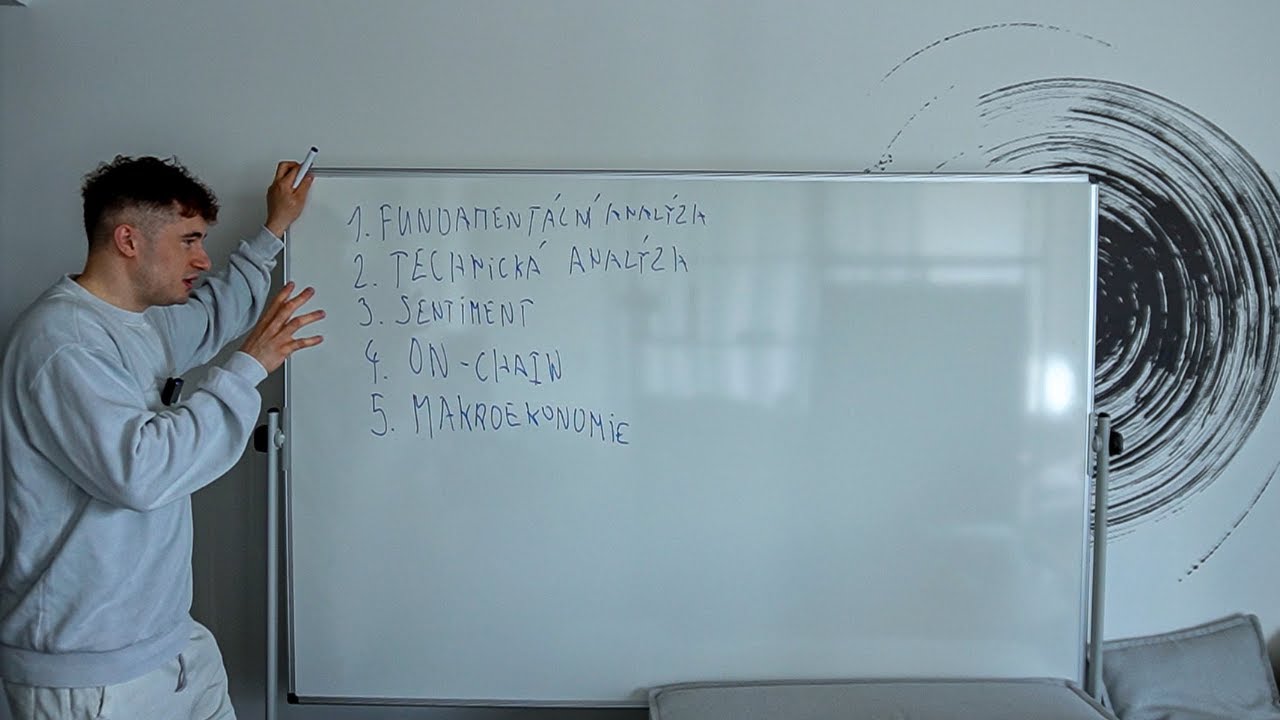 1. FUNDAMENTÁLNÍ ANALÝZA
2. TECHNICKÁ ANALÝZA
3. SENTIMENT
4. ON-CHAIN
5. MAKROEKONOMIE